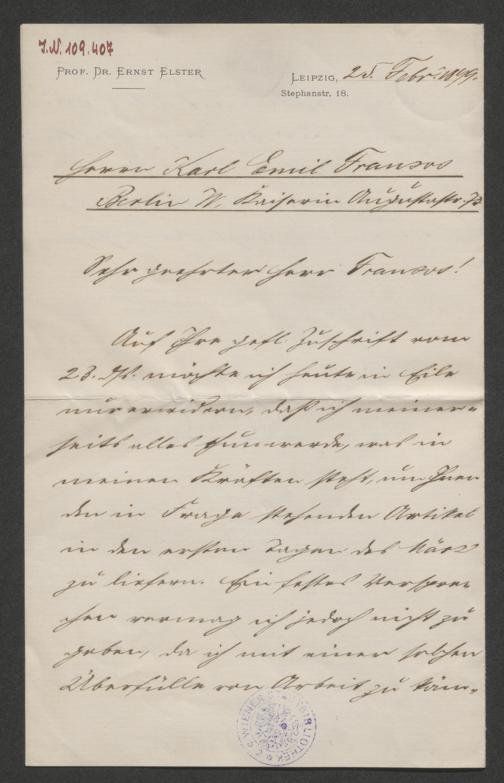 I.N. 109.407
PROF. DR. ERNST ELSTER
LEIPZIG, 25. Febr. 1899.
Stephanstr. 18.
Herrn Karl Emil Franzos
Berlin W. Kaiserin Augustastr. 73
Sehr geehrter Herr Franzos!
Auf Ihre gefl. Zuschrift vom
23. ds. möchte ich heute in Eile
nur erwidern, daß ich meiner=
seits alles thun werde, was in
meinen Kräften steht, um Ihnen
den in Frage stehenden Artikel
in den ersten Tagen des März
zu liefern. Ein festes Verspre
chen vermag ich jedoch nicht zu
geben, da ich mit einer solchen
Überfülle von Arbeit zu käm=
WIENER STADTBIBLIOTHEK